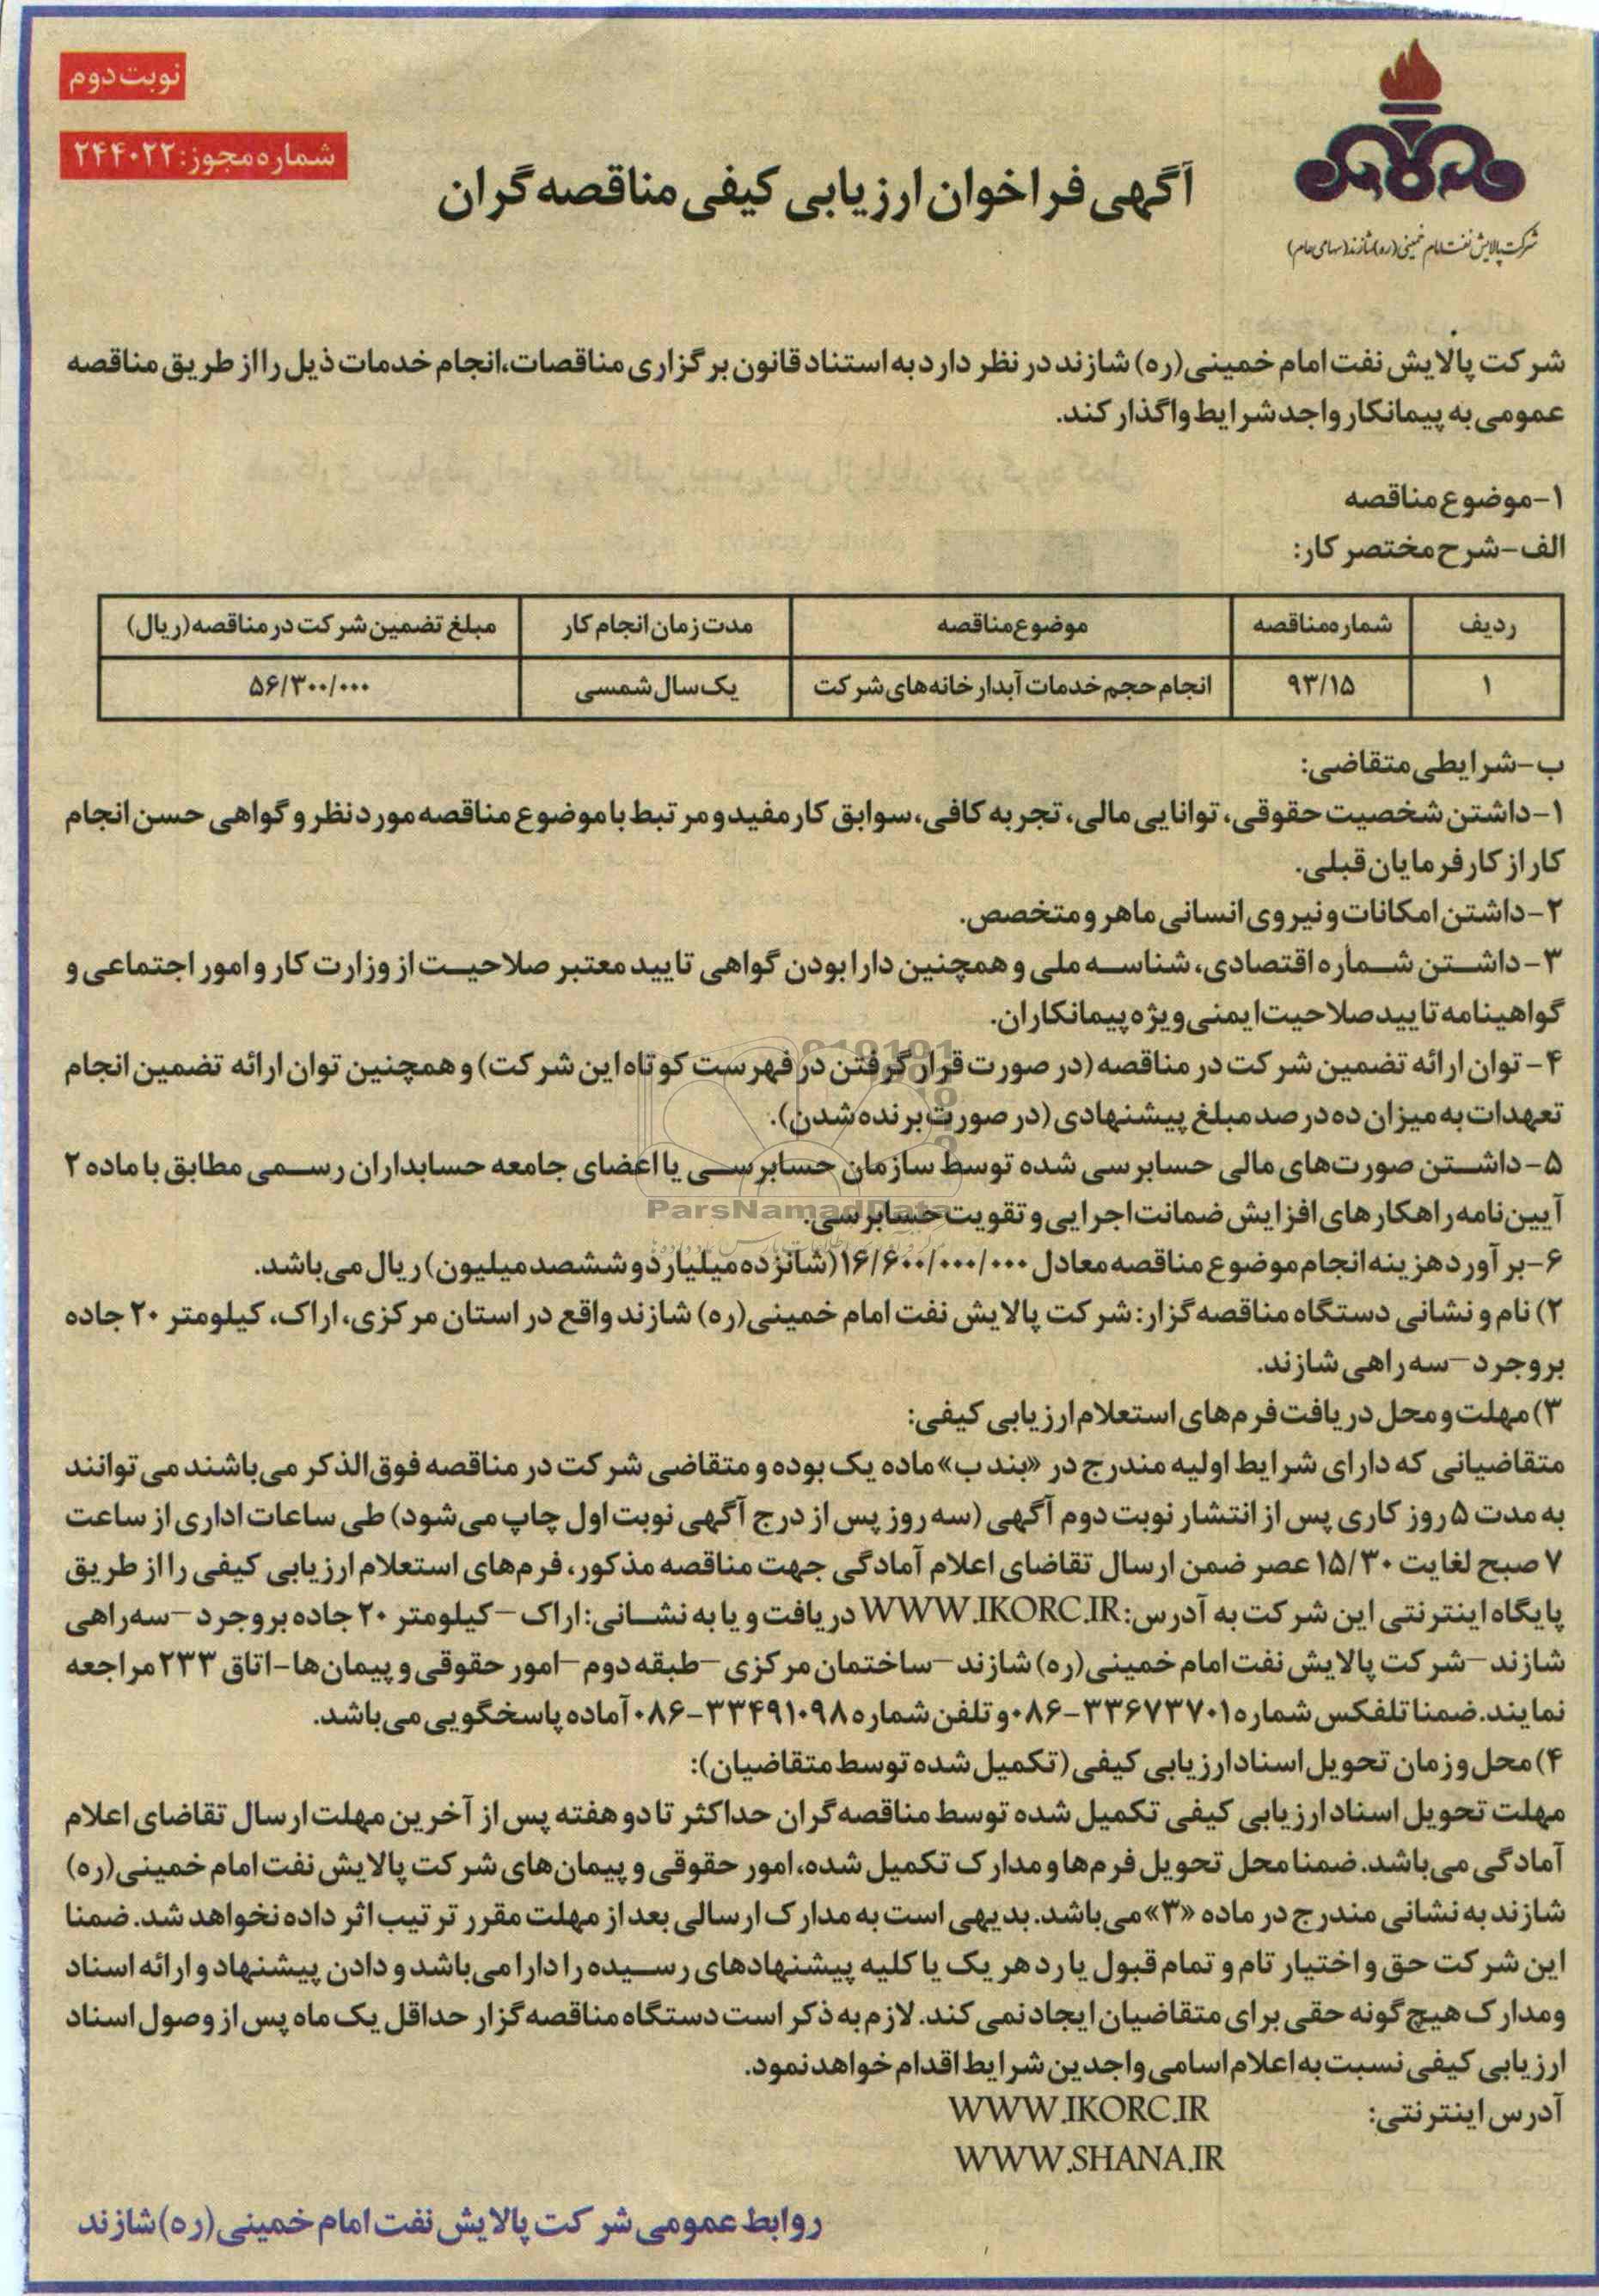 نوبت دوم
شماره مجوز: ۲۴۴۰۲۲
شرکت پالایش نفت امام خمینی (ره) شازند (سهامی عام)
آگهی فراخوان ارزیابی کیفی مناقصه‌گران
شرکت پالایش نفت امام خمینی(ره) شازند در نظر دارد به استناد قانون برگزاری مناقصات، انجام خدمات ذیل را از طریق مناقصه
عمومی به پیمانکار واجد شرایط واگذار کند.
۱-موضوع مناقصه
الف-شرح مختصر کار:
ردیف شماره مناقصه موضوع مناقصه مدت زمان انجام کار مبلغ تضمین شرکت در مناقصه (ریال)
۱ ۹۳/۱۵ انجام حجم خدمات آبدارخانه‌های شرکت یک سال شمسی ۵۶/۳۰۰/۰۰۰
ب-شرایطی متقاضی:
۱-داشتن شخصیت حقوقی، توانایی مالی، تجربه کافی، سوابق کار مفید و مرتبط با موضوع مناقصه مورد نظر و گواهی حسن انجام
کار از کارفرمایان قبلی.
۲-داشتن امکانات و نیروی انسانی ماهر و متخصص.
۳- داشتن شماره اقتصادی، شناسه ملی و همچنین دارا بودن گواهی تایید معتبر صلاحیت از وزارت کار و امور اجتماعی و
گواهینامه تایید صلاحیت ایمنی ویژه پیمانکاران.
۴- توان ارائه تضمین شرکت در مناقصه (در صورت قرار گرفتن در فهرست کوتاه این شرکت) و همچنین توان ارائه تضمین انجام
تعهدات به میزان ده درصد مبلغ پیشنهادی (در صورت برنده شدن).
۵-داشتن صورت‌های مالی حسابرسی شده توسط سازمان حسابرسی یا اعضای جامعه حسابداران رسمی مطابق با ماده ۲
آیین‌نامه راهکارهای افزایش ضمانت اجرایی و تقویت حسابرسی.
ParsNamadData
۶-برآورد هزینه انجام موضوع مناقصه معادل ۱۶/۶۰۰/۰۰۰/۰۰۰ (شانزده میلیارد و ششصد میلیون) ریال می‌باشد.
۲) نام و نشانی دستگاه مناقصه‌گزار: شرکت پالایش نفت امام خمینی(ره) شازند واقع در استان مرکزی، اراک، کیلومتر ۲۰ جاده
بروجرد-سه راهی شازند.
۳) مهلت و محل دریافت فرم‌های استعلام ارزیابی کیفی:
متقاضیانی که دارای شرایط اولیه مندرج در «بند ب» ماده یک بوده و متقاضی شرکت در مناقصه فوق‌الذکر می‌باشند می‌توانند
به مدت ۵ روز کاری پس از انتشار نوبت دوم آگهی (سه روز پس از درج آگهی نوبت اول چاپ می‌شود) طی ساعات اداری از ساعت
۷ صبح لغایت ۱۵/۳۰ عصر ضمن ارسال تقاضای اعلام آمادگی جهت مناقصه مذکور، فرم‌های استعلام ارزیابی کیفی را از طریق
پایگاه اینترنتی این شرکت به آدرس: WWW.IKORC.IR دریافت و یا به نشانی: اراک -کیلومتر ۲۰ جاده بروجرد -سه‌راهی
شازند-شرکت پالایش نفت امام خمینی(ره) شازند-ساختمان مرکزی-طبقه دوم-امور حقوقی و پیمان‌ها-اتاق ۲۳۳ مراجعه
نمایند. ضمنا تلفکس شماره ۳۳۶۷۳۷۰۱-۰۸۶ و تلفن شماره ۳۳۴۹۱۰۹۸-۰۸۶ آماده پاسخگویی می‌باشد.
۴) محل و زمان تحویل اسناد ارزیابی کیفی (تکمیل شده توسط متقاضیان):
مهلت تحویل اسناد ارزیابی کیفی تکمیل شده توسط مناقصه‌گران حداکثر تا دو هفته پس از آخرین مهلت ارسال تقاضای اعلام
آمادگی می‌باشد. ضمنا محل تحویل فرم‌ها و مدارک تکمیل شده، امور حقوقی و پیمان‌های شرکت پالایش نفت امام خمینی(ره)
شازند به نشانی مندرج در ماده «۳» می‌باشد. بدیهی است به مدارک ارسالی بعد از مهلت مقرر ترتیب اثر داده نخواهد شد. ضمنا
این شرکت حق و اختیار تام و تمام قبول یا رد هر یک یا کلیه پیشنهادهای رسیده را دارا می‌باشد و دادن پیشنهاد و ارائه اسناد
ومدارک هیچ‌گونه حقی برای متقاضیان ایجاد نمی‌کند. لازم به ذکر است دستگاه مناقصه‌گزار حداقل یک ماه پس از وصول اسناد
ارزیابی کیفی نسبت به اعلام اسامی واجدین شرایط اقدام خواهد نمود.
آدرس اینترنتی: WWW.IKORC.IR
WWW.SHANA.IR
روابط عمومی شرکت پالایش نفت امام خمینی(ره) شازند